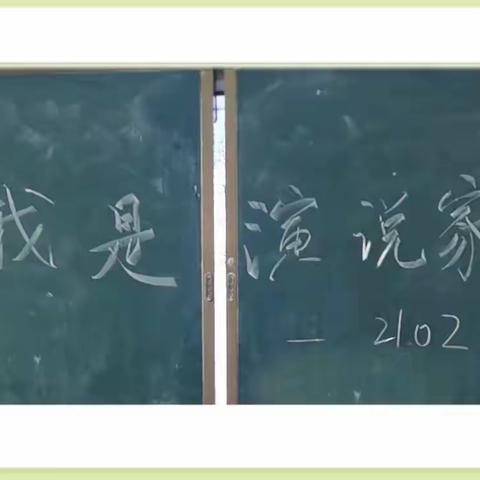 我是演说家
— 2102